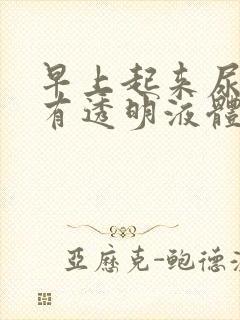 早上起来尿
有透明液體
亞歷克-鮑德